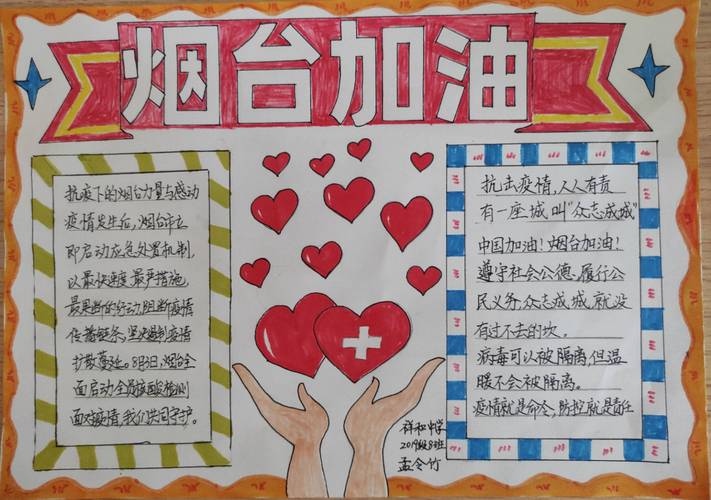 烟台加油
抗疫下的烟台力量与感动
疫情发生后,烟台市立
即启动应急处置机制,
以最快速度、最严措施、
最果断的行动,阻断疫情
传播链条,坚决遏制疫情
扩散蔓延。8月3日,烟台全
面启动全员核酸检测
面对疫情,我们共同守护。
抗击疫情,人人有责
有一座城叫“众志成城”
中国加油!烟台加油!
遵守社会公德、履行公
民义务,众志成城,就没
有过不去的坎。
病毒可以被隔离,但温
暖不会被隔离。
疫情就是命令,防控就是责任
祥和中学
2019级8班
孟令竹